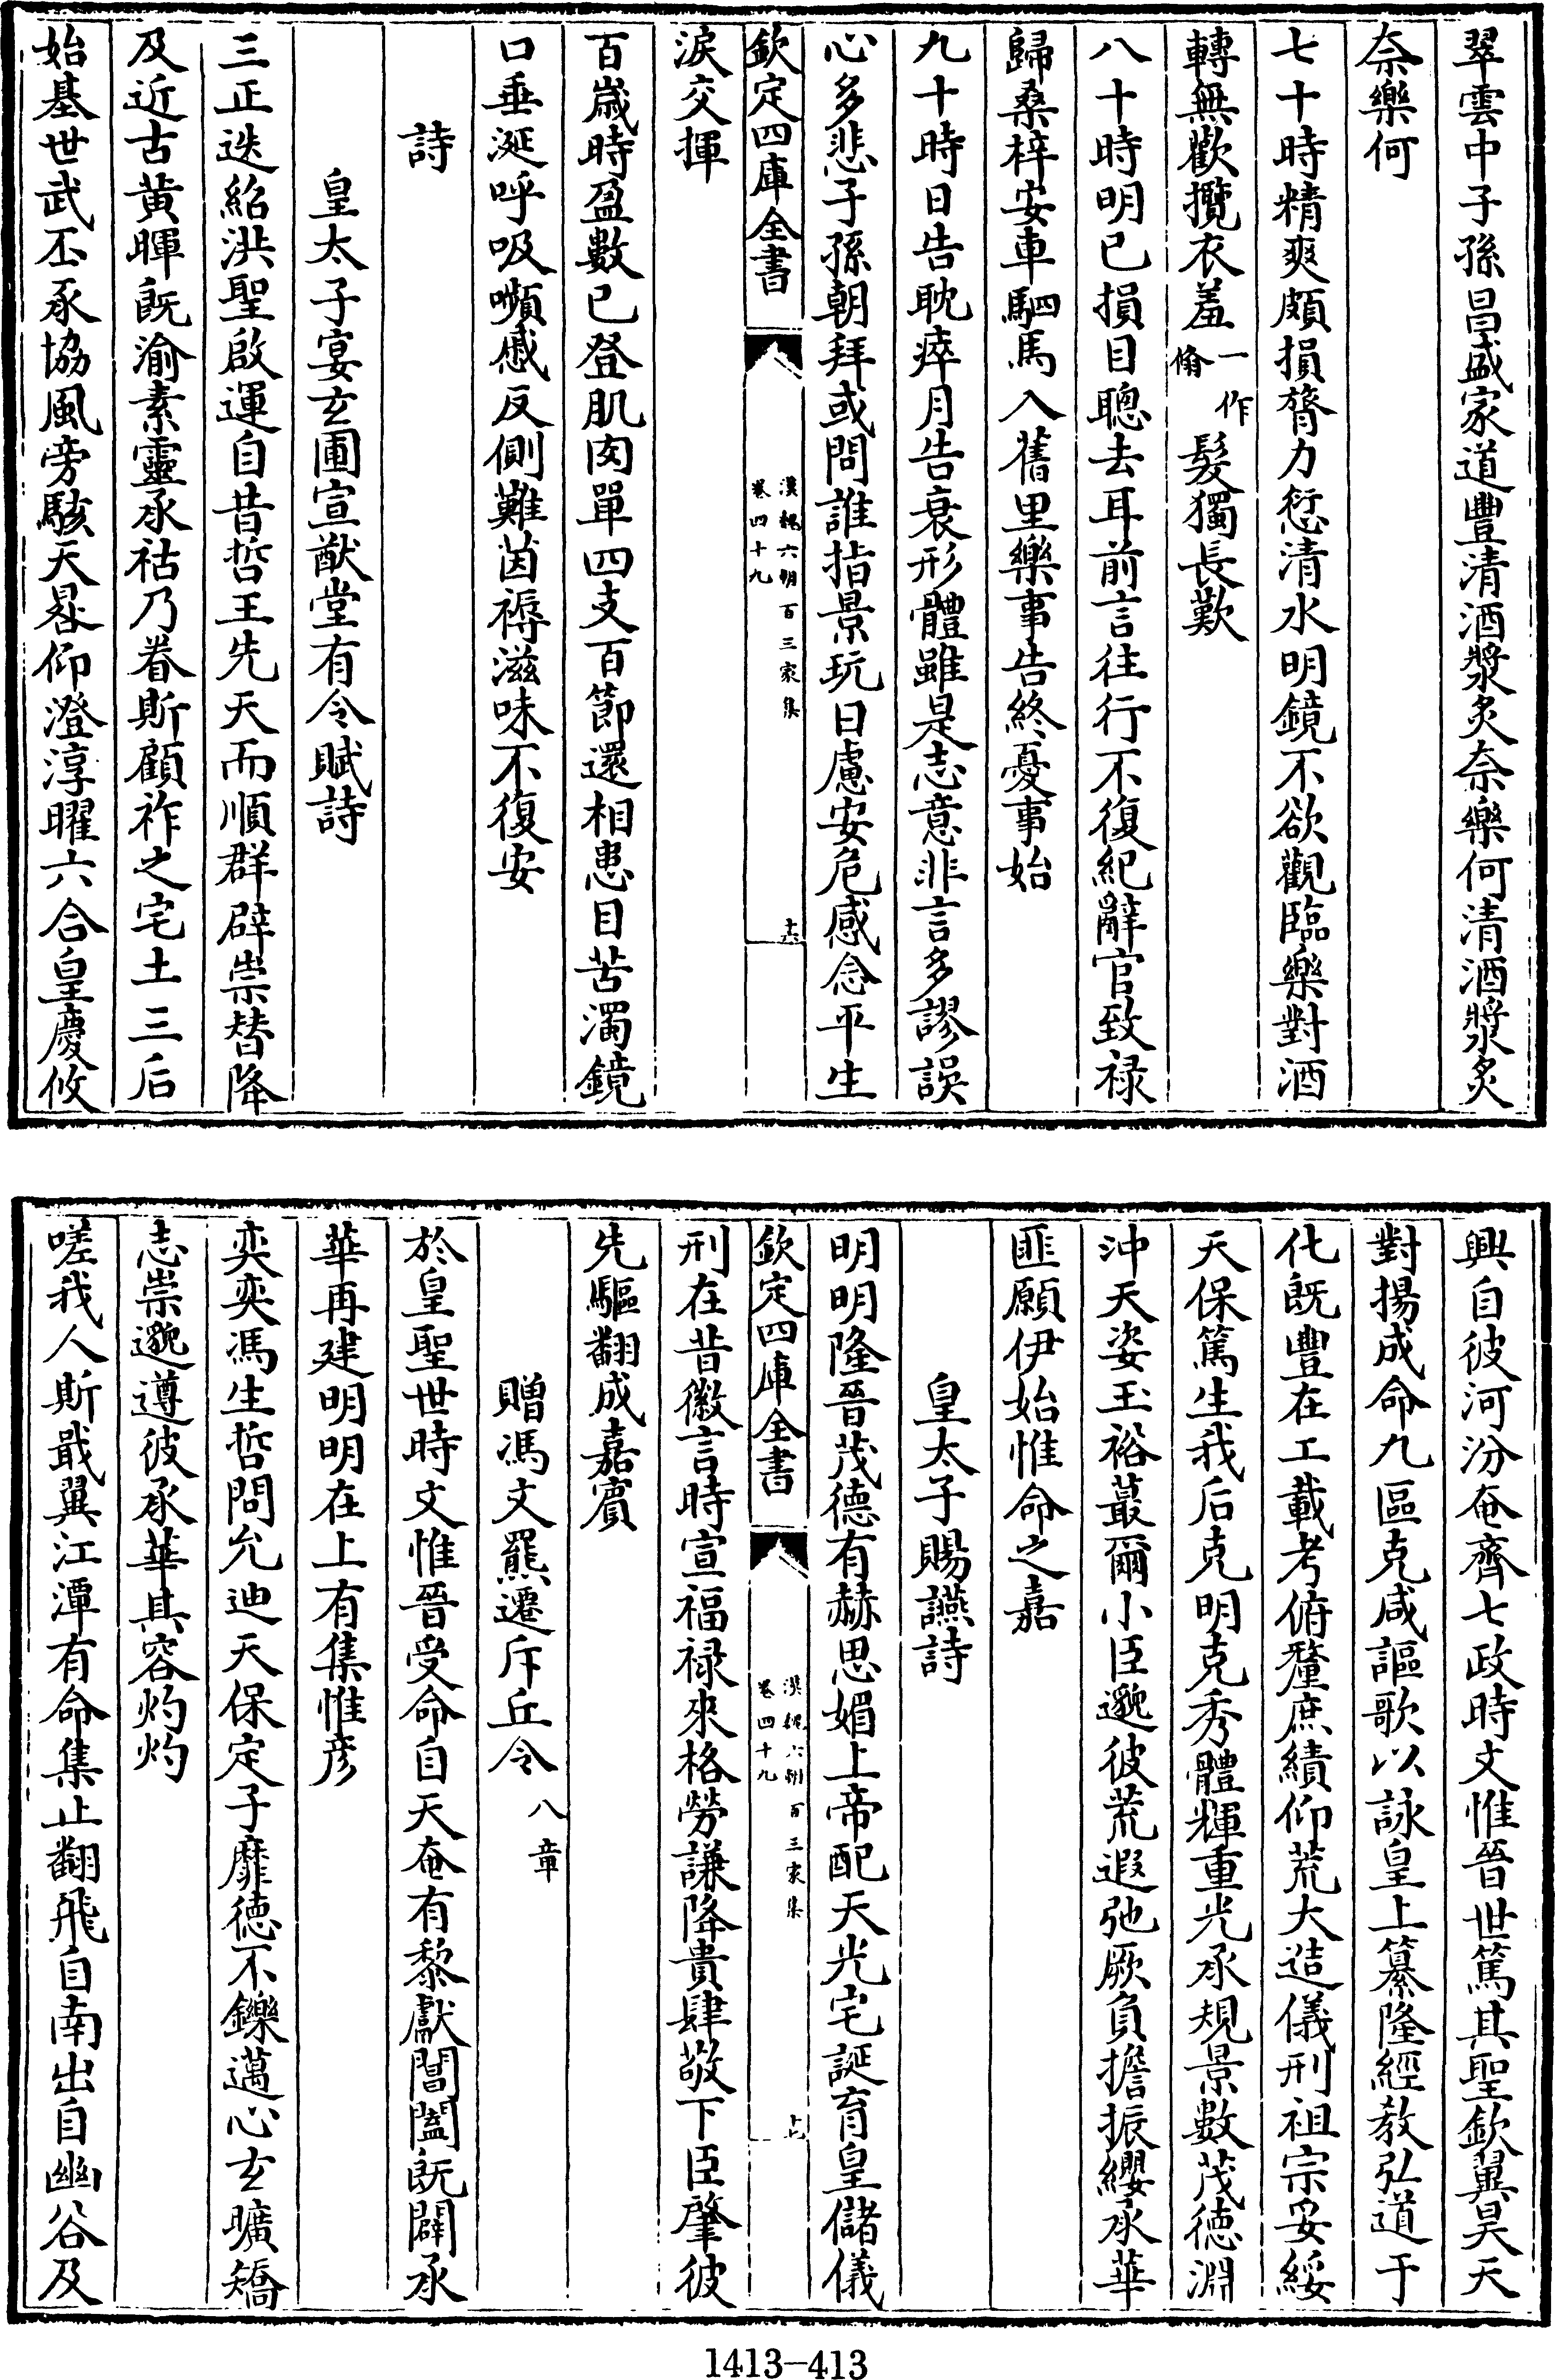 翠雲中子孫昌盛家道豐清酒漿炙奈樂何清酒漿炙
奈樂何
七十時精爽頗損膂力愆清水明鏡不欲觀臨樂對酒
轉無歡攬衣羞一作脩髮獨長歎
八十時明已損目聰去耳前言往行不復紀辭官致禄
歸桑梓安車駟馬入舊里樂事告終憂事始
九十時日告耽瘁月告衰形體雖是志意非言多謬誤
心多悲子孫朝拜或問誰指景玩日慮安危感念平生
欽定四庫全書
漢魏六朝百三家集
卷四十九
十六
淚交揮
百嵗時盈數已登肌肉單四支百節還相患目若濁鏡
口垂涎呼吸嚬慼反側難茵褥滋味不復安
詩
皇太子宴玄圃宣猷堂有令賦詩
三正迭紹洪聖啟運自昔哲王先天而順群辟崇替降
及近古黄暉既渝素靈承祜乃眷斯顧祚之宅土三后
始基世武丕承協風旁駭天晷仰澄淳曜六合皇慶攸
興自彼河汾奄齊七政時文惟晉世篤其聖欽翼昊天
對揚成命九區克咸謳歌以詠皇上纂隆經教弘道于
化既豐在工載考俯釐庶績仰荒大造儀刑祖宗妥綏
天保篤生我后克明克秀體輝重光承規景數茂德淵
沖天姿玉裕蕞爾小臣邈彼荒遐弛厥負擔振纓承華
匪願伊始惟命之嘉
皇太子賜讌詩
明明隆晉茂德有赫思媚上帝配天光宅誕育皇儲儀
欽定四庫全書
漢魏六朝百三家集
卷四十九
十七
刑在昔徽言時宣福禄來格勞謙降貴肆敬下臣肇彼
先驅翻成嘉賓
贈馮文羆遷斥丘令八章
於皇聖世時文惟晉受命自天奄有黎獻閶闔既闢承
華再建明明在上有集惟彦
奕奕馮生哲問允迪天保定子靡德不鑠邁心玄曠矯
志崇邈遵彼承華其容灼灼
嗟我人斯戢翼江潭有命集止翻飛自南出自幽谷及
1413-413